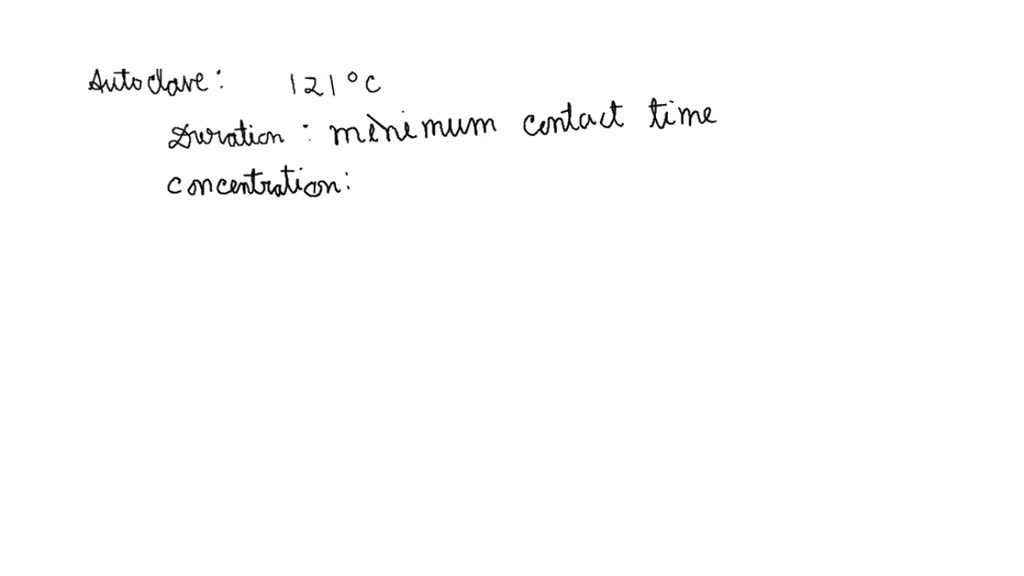 Autoclave: 121°C
Duration: minimum contact time
concentration: